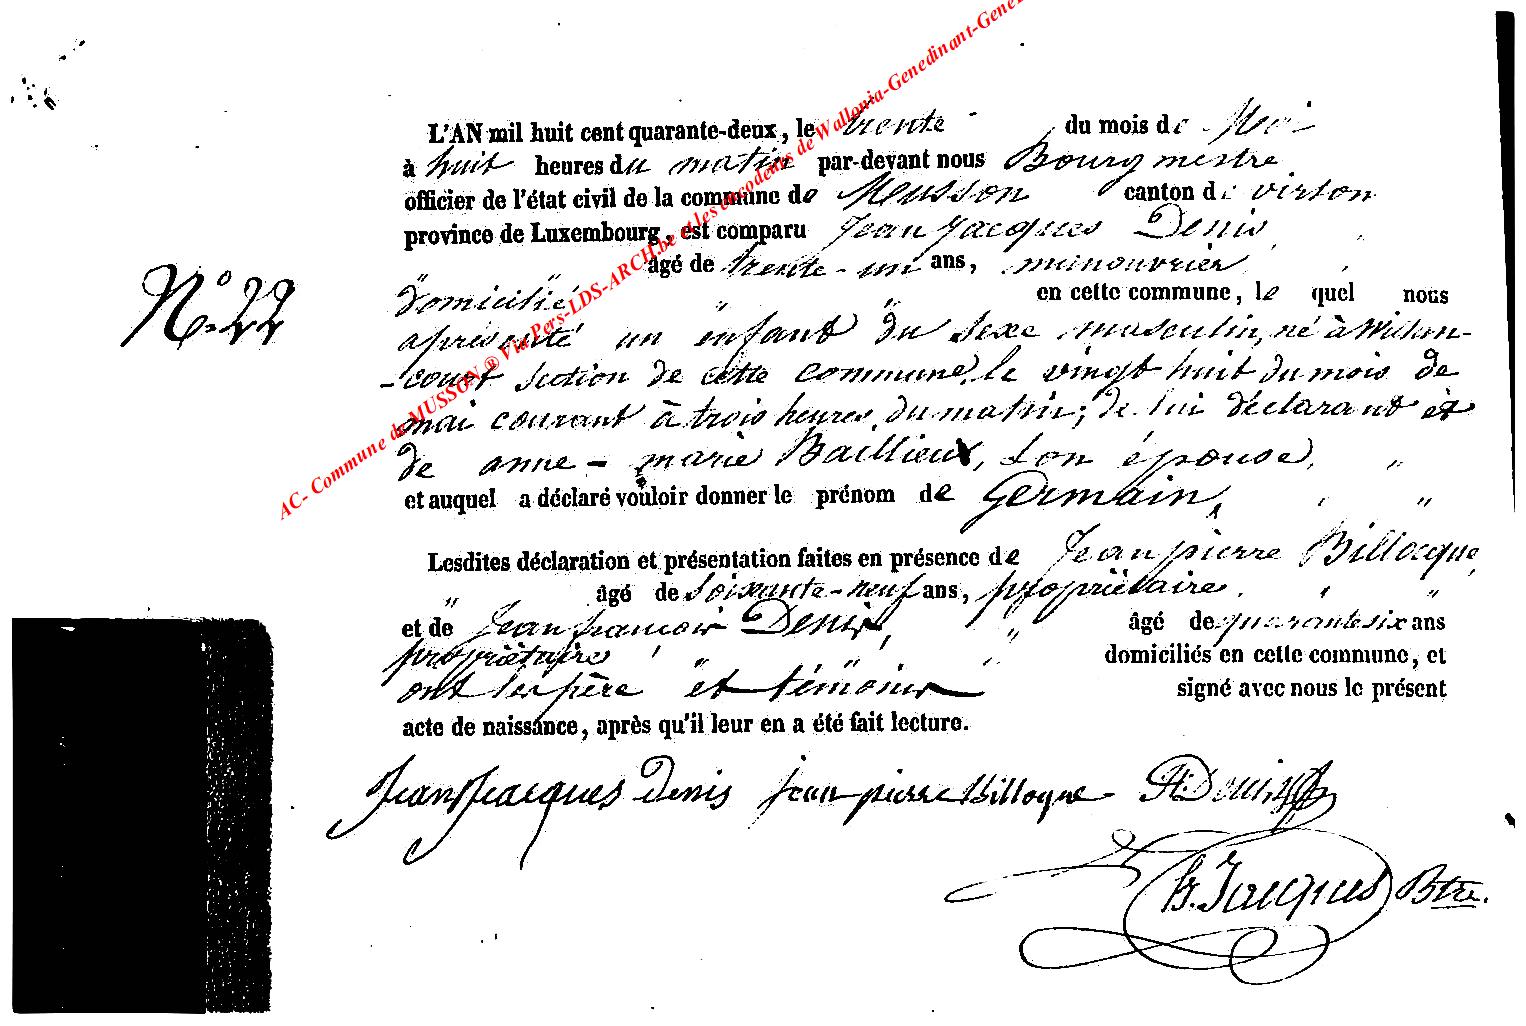 L'AN mil huit cent quarante-deux, le trente du mois de Mai
à huit heures du matin par-devant nous Bourgmestre
officier de l'état civil de la commune de Musson canton de virton
province de Luxembourg, est comparu Jean Jacques Denis
âgé de trente-un ans, manouvrier
domicilié en cette commune, le quel nous
N° 22
a présenté un enfant du sexe masculin, né à Willan-
-court section de cette commune, le vingt huit du mois de
mai courant à trois heures du matin; de lui déclarant et
de anne-marie Baillieux, son épouse,
et auquel a déclaré vouloir donner le prénom de Germain,
Lesdites déclaration et présentation faites en présence de Jean pierre Billocque,
âgé de soixante-neuf ans, propriétaire
et de Jean françois Denis, âgé de quarante six ans
propriétaire, domiciliés en cette commune, et
ont les père et témoins signé avec nous le présent
acte de naissance, après qu'il leur en a été fait lecture.
Jean Jacques Denis jean pierre Billoque Denis
Jacques Btre.
AC- Commune de MUSSON ® Via Pers-LDS-ARCH.be et les encodeurs de Wallonia-Genedinant-Gene